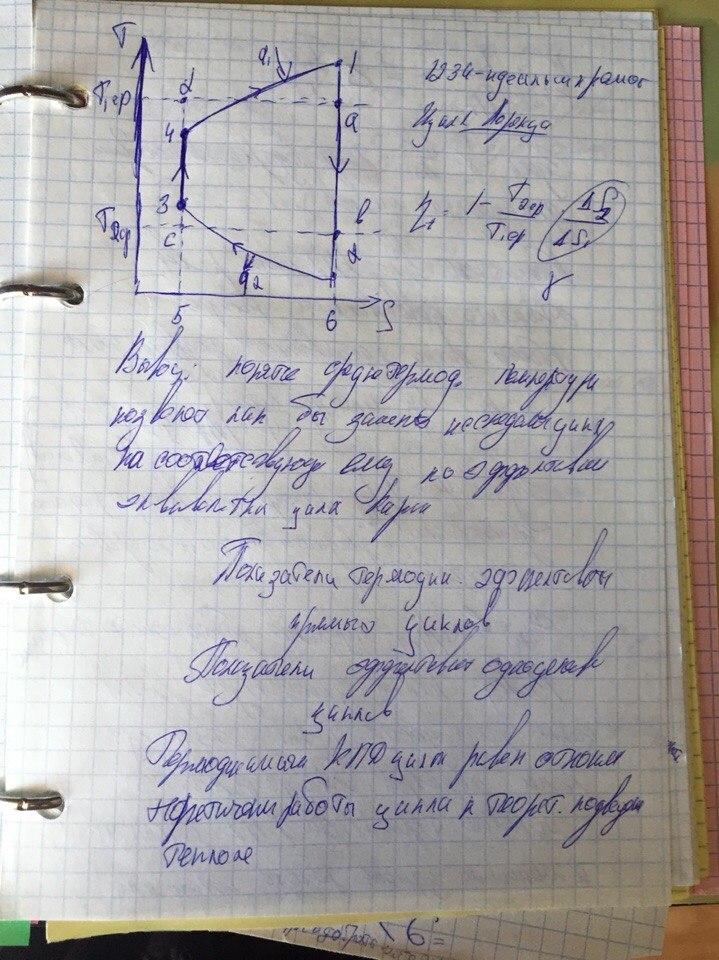 T
q₁
1
T₁ср
d
a
4
3
T₂ср
c
b
2
q₂
5
6
S
1234-идеальн прямой
Цикл Лоренца
ηt = 1 - T₂ср/T₁ср ΔS₂/ΔS₁
γ
Вывод: понятие среднетермод. температуры
позволяет как бы заменить исследовал цикл
на соответствующе ему по эффективн
эквивалентн цикл Карно
Показатели термодин. эффективн
прямых циклов
Показатели эффективн однацелев
циклов
Термодинамич КПД цикла равен отношен
теоретическ работы цикла к теорет. подведен
теплоте